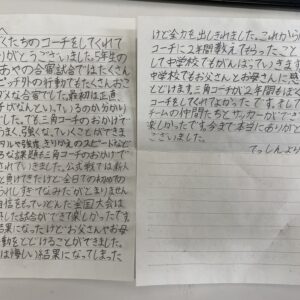 へ
くたちのコーチをしてくれて
りがとうございました。5年生の
あやの合宿試合ではたくさん
ピッチ外の行動でもたくさんおこ
メな合宿でした。最初は正直
チがなんといっているのか分かり
でした。でも三角コーチのおかげで
うまく、強くなっていくことができま
タルや強度、きりかえのスピードなど
ろな課題も三角コーチのおかげで
されていきました。公式戦では新人
と負けてきたけど全日での初めての
うれしすぎてなみだがとまりません
自信をもっていどんだ全国大会は
した試合ができて楽しかったです。
結果になったけどお父さんやお母
動をとどけることができました。
は悔しい結果になってしまった
けど全力を出しきれました。これからは
コーチに2年間教えてもらったこと
して中学校でもがんばっていきます
中学校でもお父さんとお母さんに感
とどけます。三角コーチが2年間もぼく
コーチをしてくれてよかったです。そして
チームの仲間たちとサッカーができて
楽しかったです。今まで本当にありがと
ございました。
てっしんより